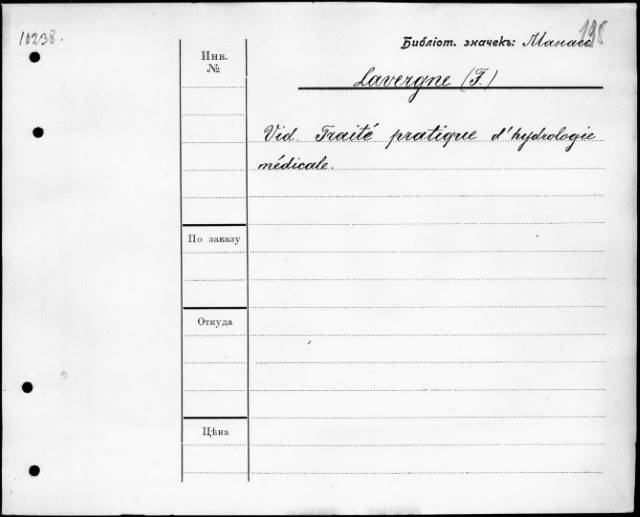 10238.
198
Библіот. значекъ:
Инв.
№
Lavergne (F.)
Vid. Traité pratique d'hydrologie
médicale.
По заказу
Откуда
Цѣна